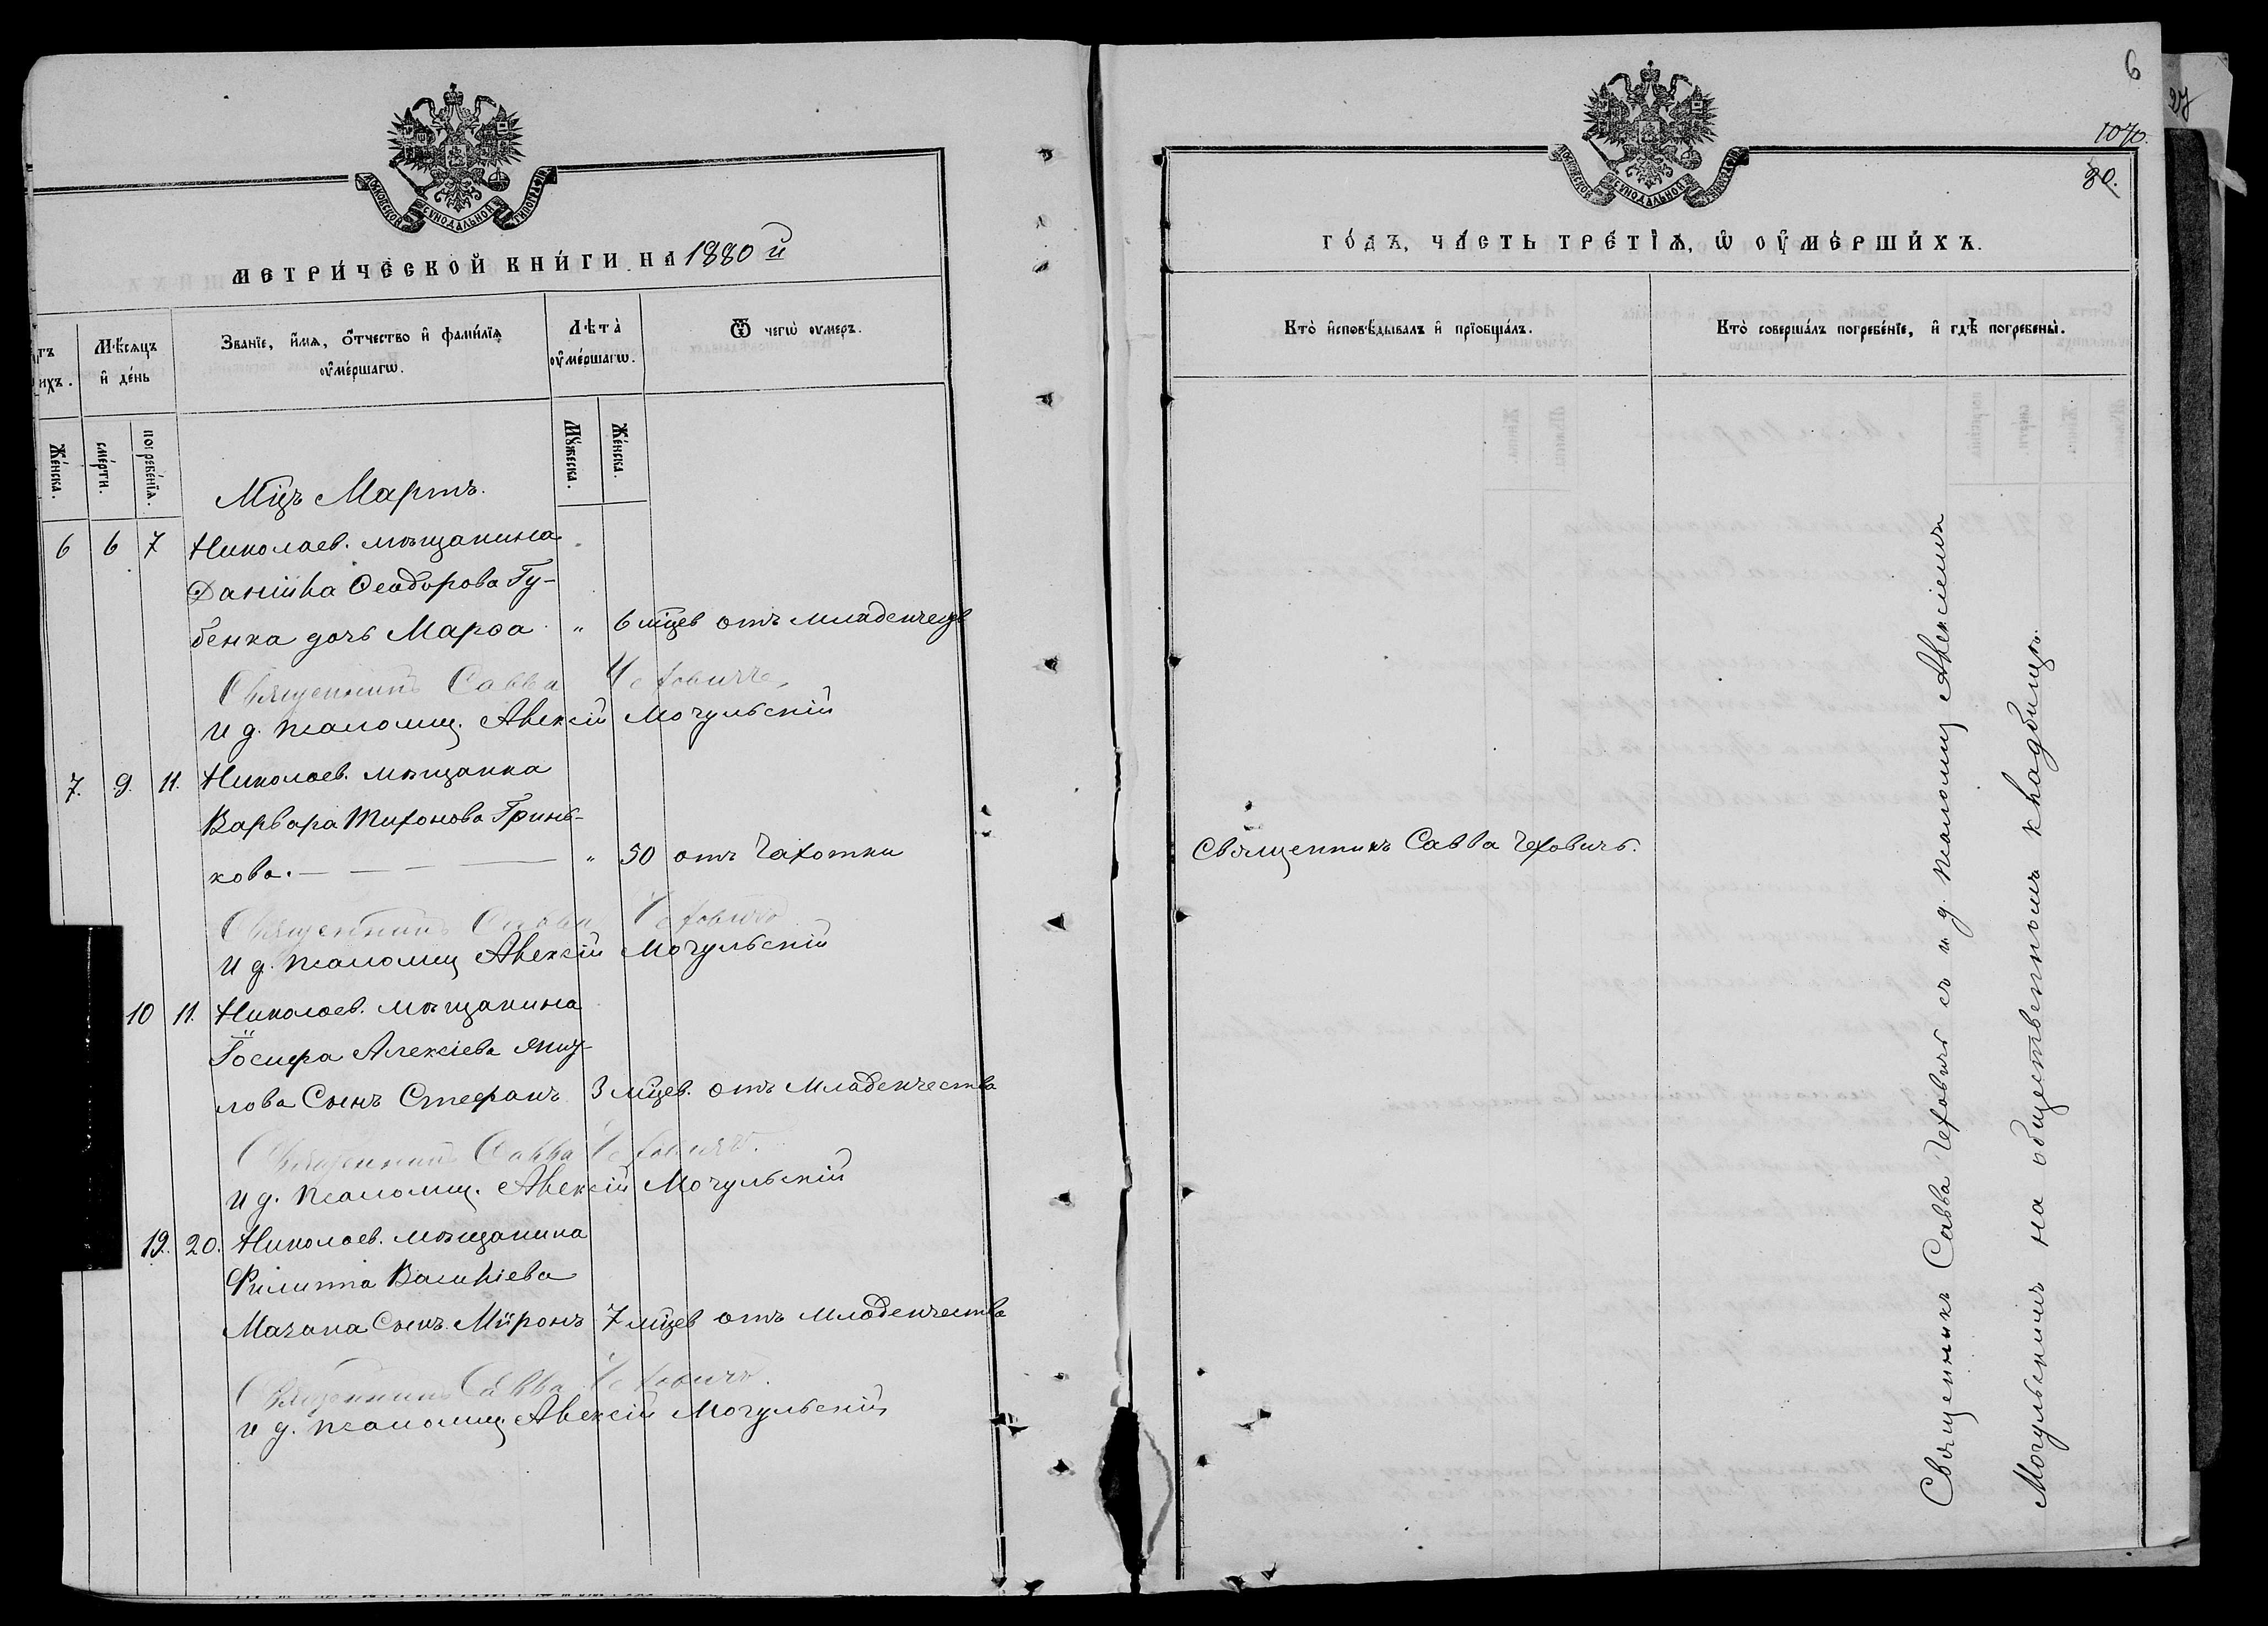 МОСКОВСКОЙ СѴНОДАЛЬНОЙ ТѴПОГРАФІИ
МЕТРИ́ЧЕСКОЙ КНИ́ГИ НА 1880 й
Же́нска.
Мѣ́сяцъ и де́нь
сме́рти.
погребе́нїѧ.
Зва́нїе, и҆́мѧ, ѻ҆́тчество и҆ фами́лїѧ ᲂу҆ме́ршагѡ.
Лѣ́та ᲂу҆ме́ршагѡ.
Мꙋ́жеска.
Же́нска.
Ѿ чегѡ̀ ᲂу҆́меръ.
Мцъ Мартъ.
6 6 7 Николаев. мѣщанина
Даніила Ѳеодорова Гу-
бенка дочь Марѳа „ 6 мцев отъ младенчества
Священникъ Савва Чеховичъ
И д. псаломщ. Алексій Могульскій
7. 9. 11. Николаев. мѣщанка
Варвара Тихонова Гринь-
кова. — — — „ 50 отъ Чахотки
Священникъ Савва Чеховичъ
И д. псаломщ Алексій Могульскій
10 11. Николаев. мѣщанина
Іосифа Алексіева Яку-
лова Сынъ Стефанъ 3 мцев. отъ Младенчества
Священникъ Савва Чеховичъ.
И д. псаломщ. Алексій Могульскій
19. 20. Николаев. мѣщанина
Филиппа Василіева
Мачана Сынъ Мѵронъ 7 мцев отъ младенчества
Священникъ Савва Чеховичъ.
и д. псаломщ. Алексій Могульскій
6
27
1070.
80.
МОСКОВСКОЙ СѴНОДАЛЬНОЙ ТѴПОГРАФІИ
ГО́ДЪ, ЧА́СТЬ ТРЕ́ТЇѦ, Ѡ҆ ОУ҆МЕ́РШИХЪ.
Кто̀ и҆сповѣ́дывалъ и҆ прїобща́лъ.
Кто̀ соверша́лъ погребе́нїе, и҆ гдѣ̀ погребены̀.
Священникъ Савва Чеховичъ.
Священникъ Савва Чеховичъ съ и д. псаломщ Алексіемъ
Могульскимъ на общественномъ кладбищѣ.